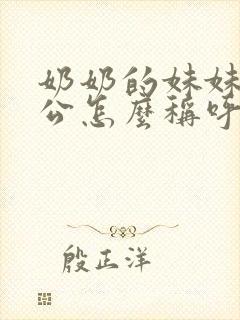 奶奶的妹妹
公怎麼稱呼
殷正洋